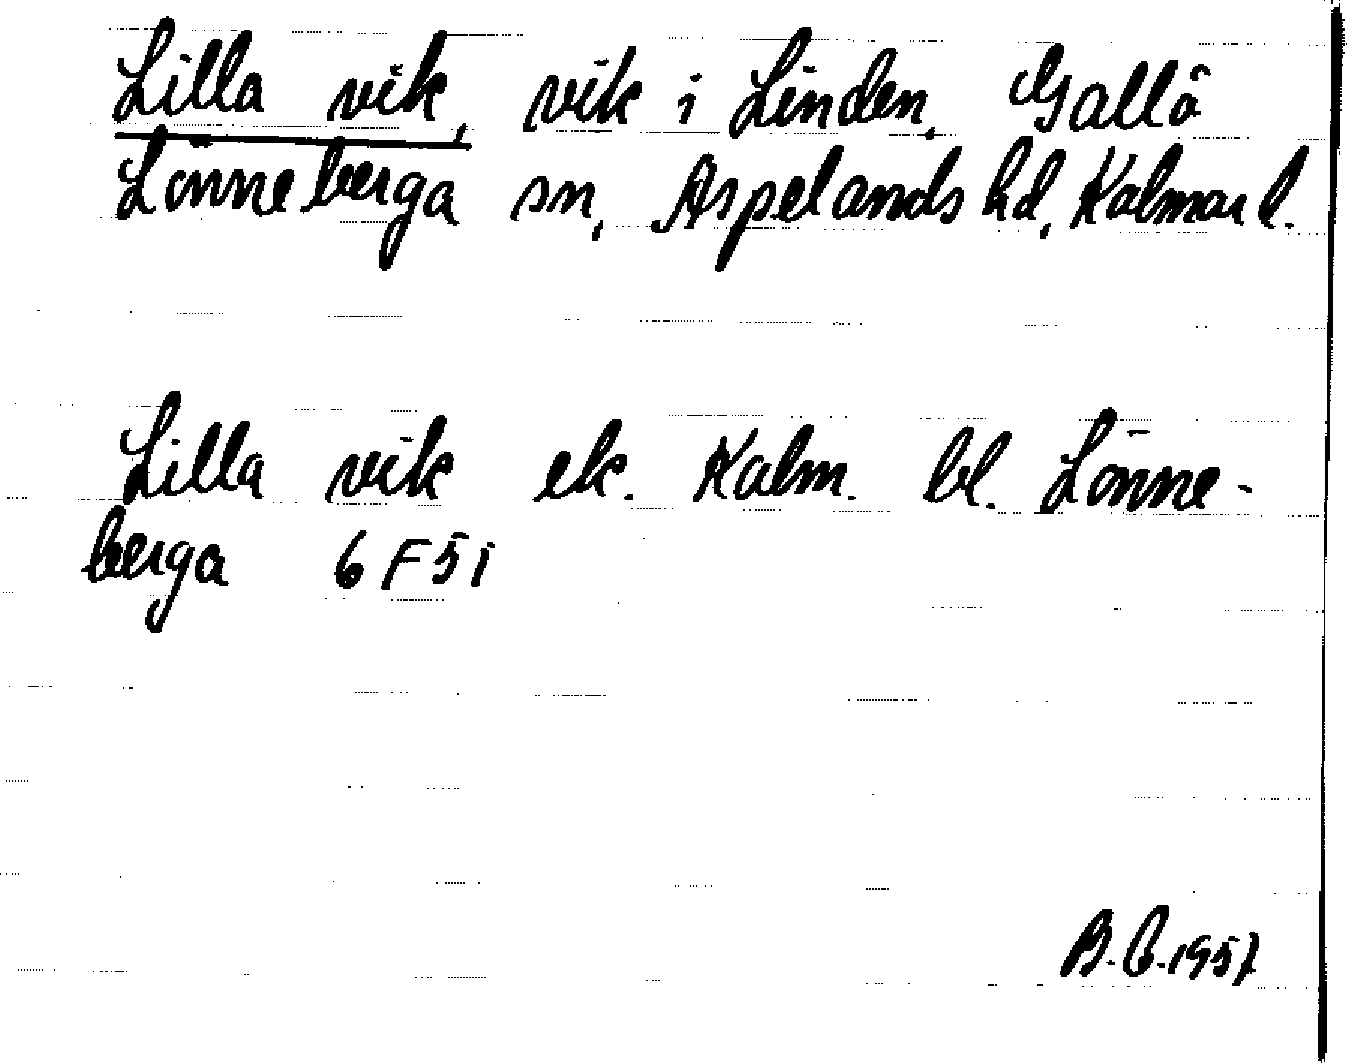 Lilla vik, vik i Linden, Gallö
Lönneberga sn, Aspelands hd, Kalmar l.
Lilla vik ek. Kalm. bl. Lönne-
berga 6 F 5 i
B. C. 1957